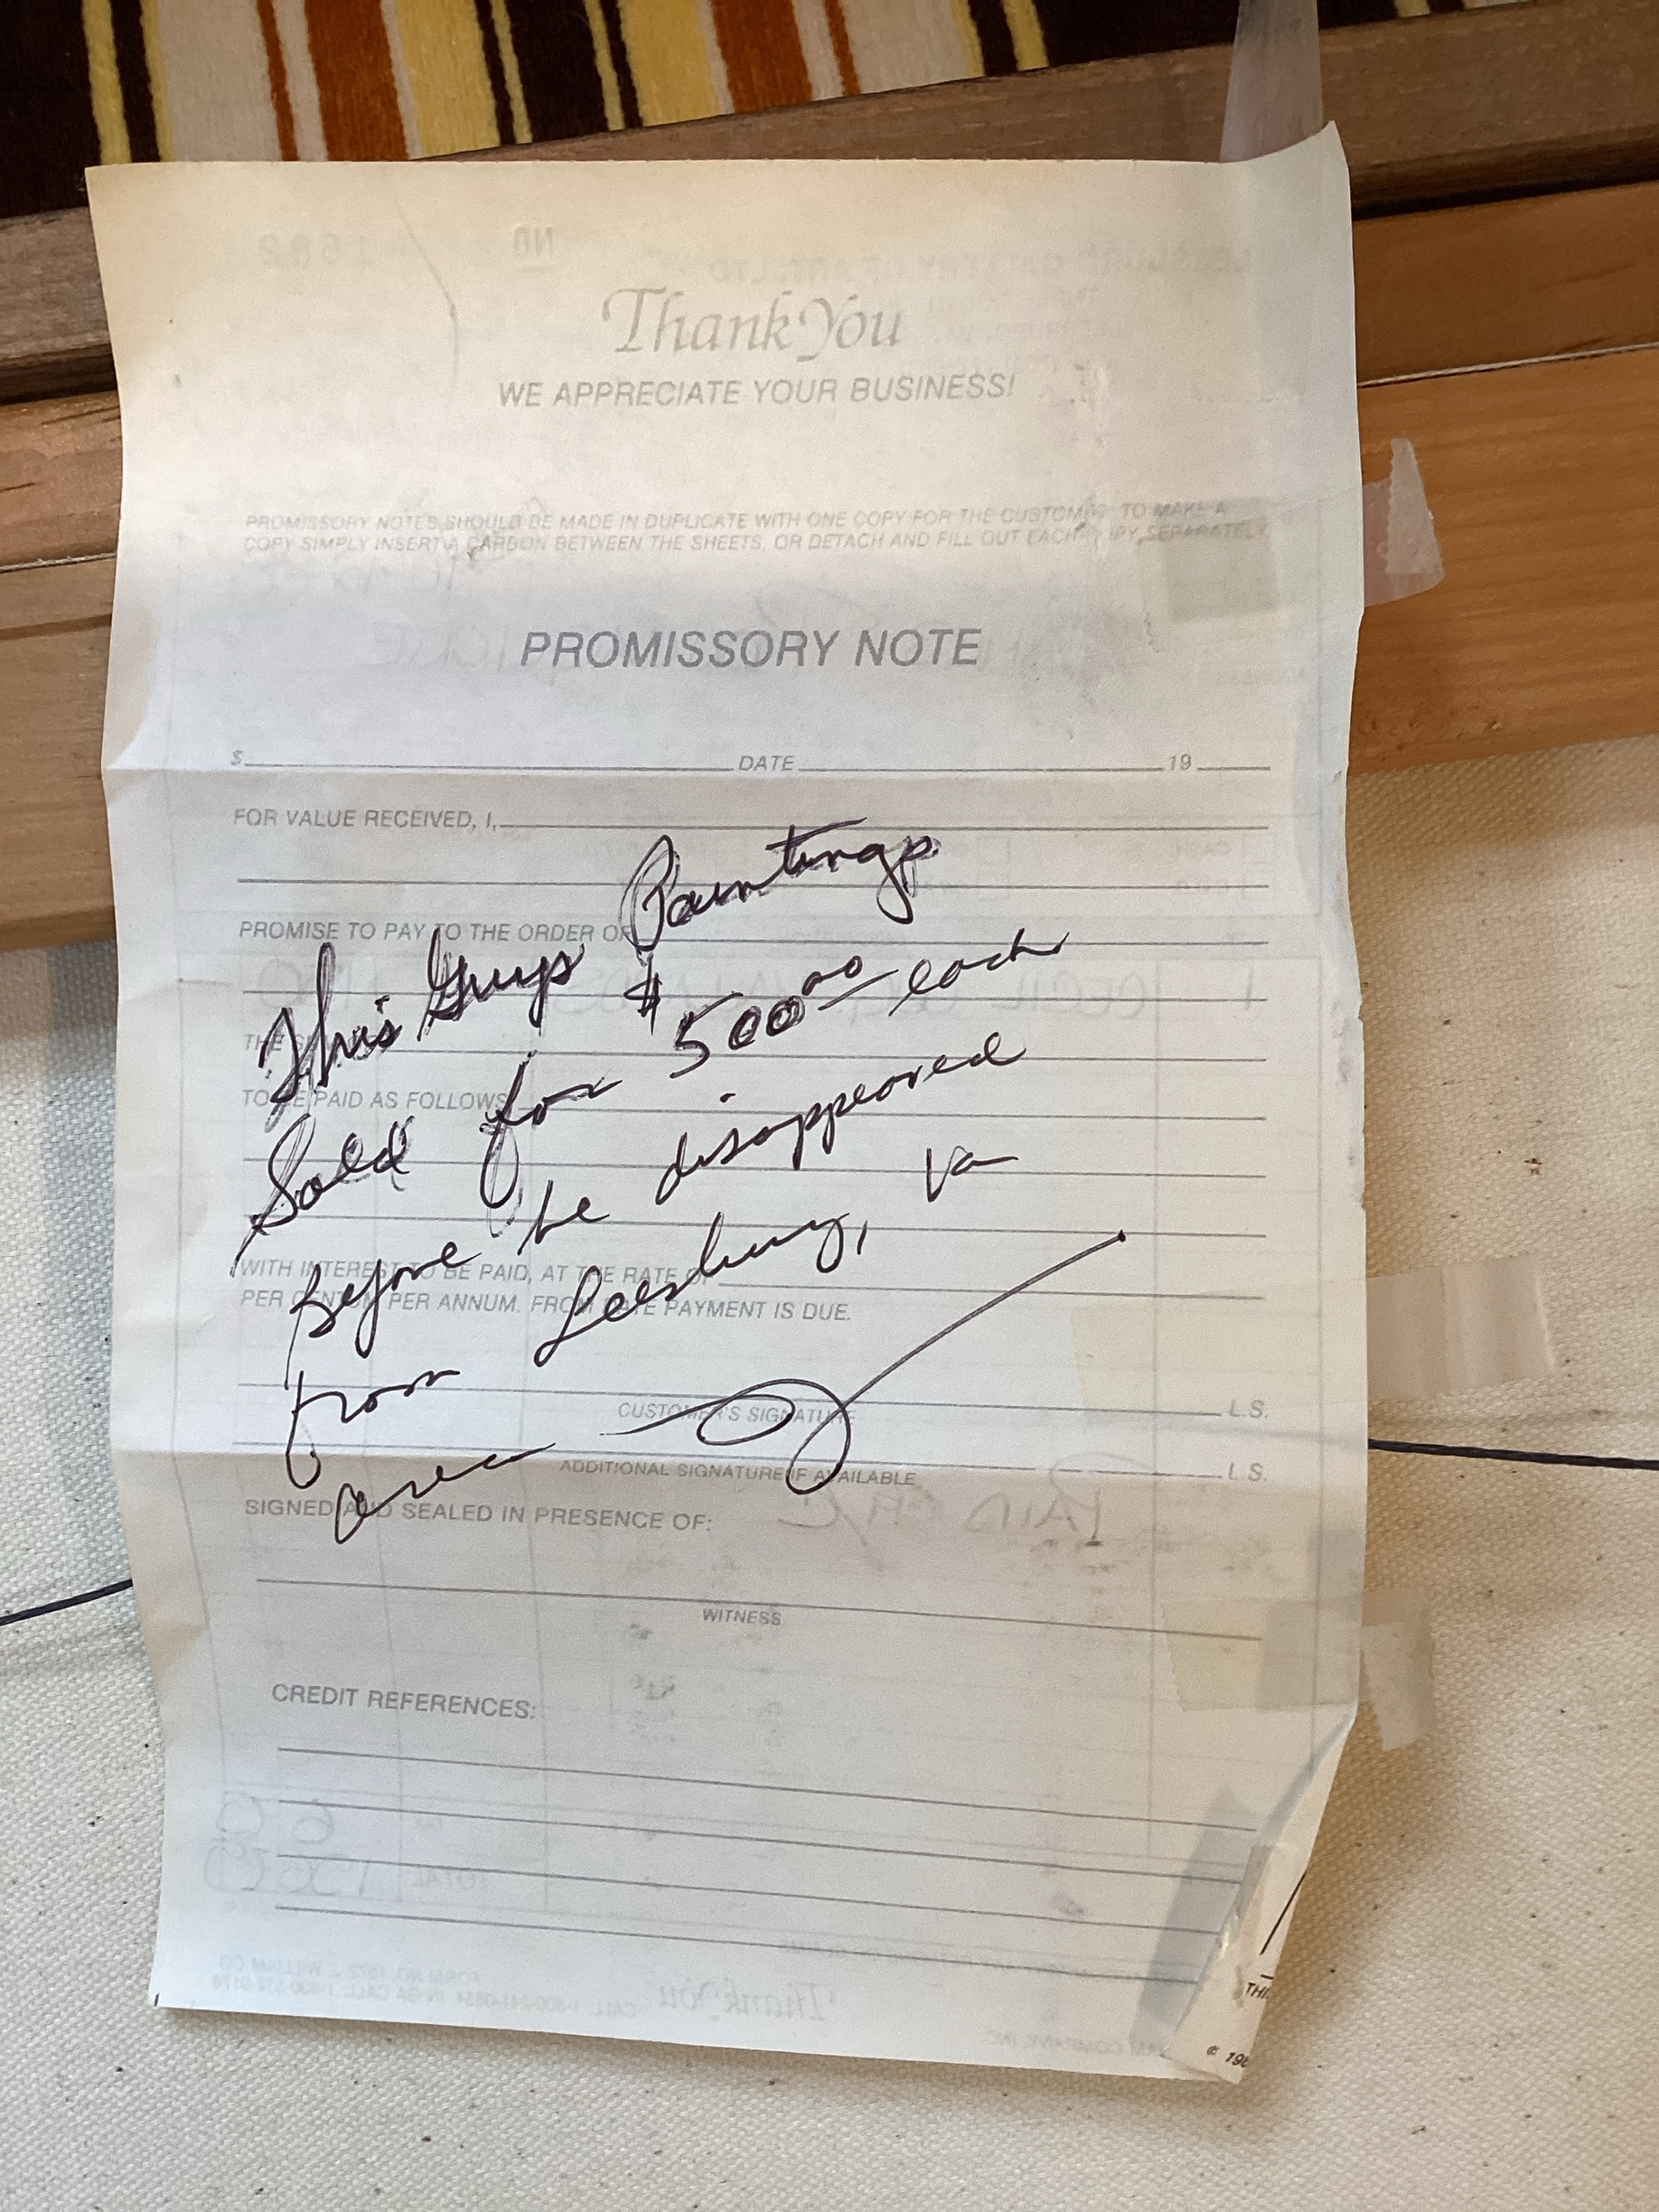 Thank You
WE APPRECIATE YOUR BUSINESS!
PROMISSORY NOTES SHOULD BE MADE IN DUPLICATE WITH ONE COPY FOR THE CUSTOMER TO MAKE A
COPY SIMPLY INSERT A CARBON BETWEEN THE SHEETS, OR DETACH AND FILL OUT EACH COPY SEPARATELY
PROMISSORY NOTE
$ DATE 19
FOR VALUE RECEIVED, I,
PROMISE TO PAY TO THE ORDER OF
THE
TO BE PAID AS FOLLOWS
WITH INTEREST TO BE PAID, AT THE RATE OF
PER CENTUM PER ANNUM. FROM DATE PAYMENT IS DUE.
This Guys Paintings
Sold for $500.00 each
Before he disappeared
from Leesburg, Va
area
CUSTOMER'S SIGNATURE L.S.
ADDITIONAL SIGNATURE IF AVAILABLE L.S.
SIGNED AND SEALED IN PRESENCE OF:
WITNESS
CREDIT REFERENCES: